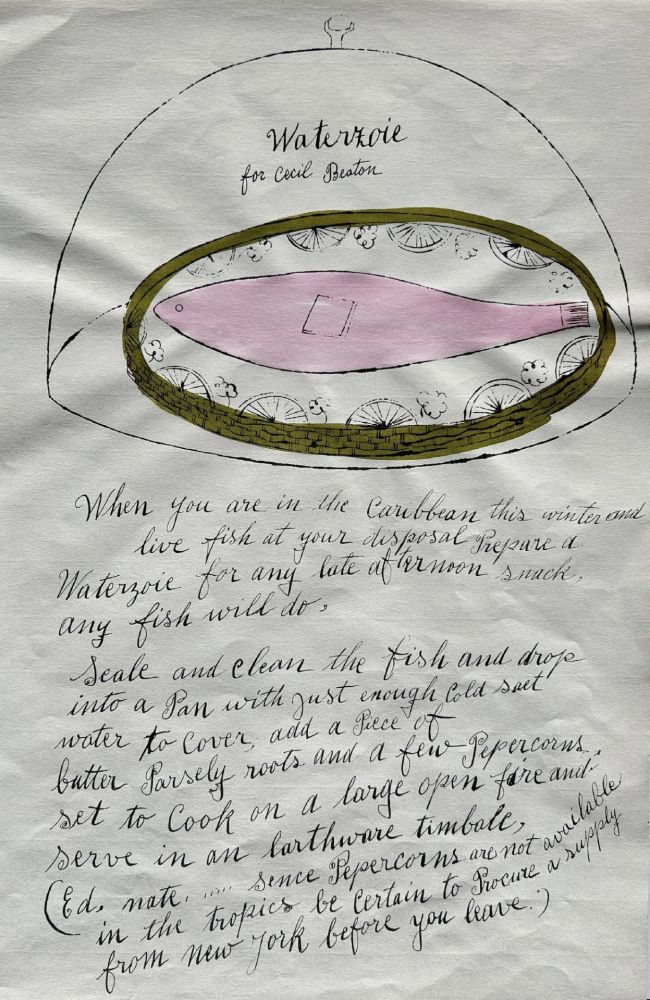 Waterzoie
for Cecil Beaton
When you are in the Caribbean this winter and
live fish at your disposal Prepare a
Waterzoie for any late afternoon snack,
any fish will do,
Scale and clean the fish and drop
into a Pan with just enough Cold salt
water to Cover, add a Piece of
butter Parsely roots and a few Pepercorns
set to Cook on a large open fire and
serve in an Earthware timbale,
(Ed. nate. ..... Sence Pepercorns are not available
in the tropics be Certain to Procure a supply
from New York before you leave.)